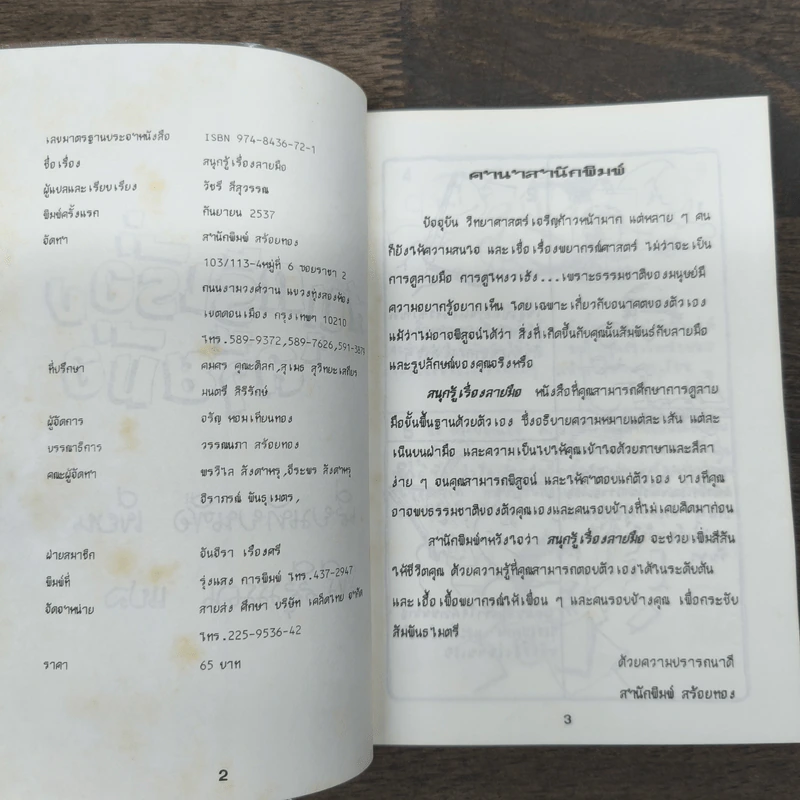 เลขมาตรฐานประจำหนังสือ ISBN 974-8436-72-1
ชื่อเรื่อง สนุกรู้เรื่องลายมือ
ผู้แปลและเรียบเรียง วัชรี สีสุวรรณ
พิมพ์ครั้งแรก กันยายน 2537
จัดทำ สำนักพิมพ์ สร้อยทอง
103/113-4หมู่ที่ 6 ซอยราชา 2
ถนนงามวงศ์วาน แขวงทุ่งสองห้อง
เขตดอนเมือง กรุงเทพฯ 10210
โทร.589-9372,589-7626,591-3879
ที่ปรึกษา คมศร คุณะดิลก,สุเมธ สุวิทยะเสถียร
มนตรี สิริรักษ์
ผู้จัดการ อรัญ หอมเทียนทอง
บรรณาธิการ วรรณนภา สร้อยทอง
คณะผู้จัดทำ พรวิไล สังดาหรุ,ธีระพร สังดาหรุ
ธิราภรณ์ พันธุเมตร,
ฝ่ายสมาชิก จันธีรา เรืองศรี
พิมพ์ที่ รุ่งแสง การพิมพ์ โทร.437-2947
จัดจำหน่าย สายส่ง ศึกษา บริษัท เคล็ดไทย จำกัด
โทร.225-9536-42
ราคา 65 บาท
2
คำนำสำนักพิมพ์
ปัจจุบัน วิทยาศาสตร์เจริญก้าวหน้ามาก แต่หลาย ๆ คน
ก็ยังให้ความสนใจ และเชื่อเรื่องพยากรณ์ศาสตร์ ไม่ว่าจะเป็น
การดูลายมือ การดูโหงวเฮ้ง...เพราะธรรมชาติของมนุษย์มี
ความอยากรู้อยากเห็น โดยเฉพาะเกี่ยวกับอนาคตของตัวเอง
แม้ว่าไม่อาจพิสูจน์ได้ว่า สิ่งที่เกิดขึ้นกับคุณนั้นสัมพันธ์กับลายมือ
และรูปลักษณ์ของคุณจริงหรือ
สนุกรู้เรื่องลายมือ หนังสือที่คุณสามารถศึกษาการดูลาย
มือขั้นพื้นฐานด้วยตัวเอง ซึ่งอธิบายความหมายแต่ละเส้น แต่ละ
เนินบนฝ่ามือ และความเป็นไปให้คุณเข้าใจด้วยภาษาและลีลา
ง่าย ๆ จนคุณสามารถพิสูจน์ และให้คำตอบแก่ตัวเอง บางทีคุณ
อาจพบธรรมชาติของตัวคุณเองและคนรอบข้างที่ไม่เคยคิดมาก่อน
สำนักพิมพ์ฯหวังใจว่า สนุกรู้เรื่องลายมือ จะช่วยเพิ่มสีสัน
ให้ชีวิตคุณ ด้วยความรู้ที่คุณสามารถตอบตัวเองได้ในระดับต้น
และเอื้อเฟื้อพยากรณ์ให้เพื่อน ๆ และคนรอบข้างคุณ เพื่อกระชับ
สัมพันธไมตรี
ด้วยความปรารถนาดี
สำนักพิมพ์ สร้อยทอง
3